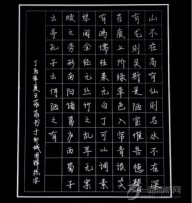 山不在高有仙则名水不在深
有龙则灵斯是陋室惟吾德馨
苔痕上阶绿草色入帘青谈笑
有鸿儒往来无白丁可以调素
琴阅金经无丝竹之乱耳无案
牍之劳形南阳诸葛庐西蜀子
云亭孔子云何陋之有